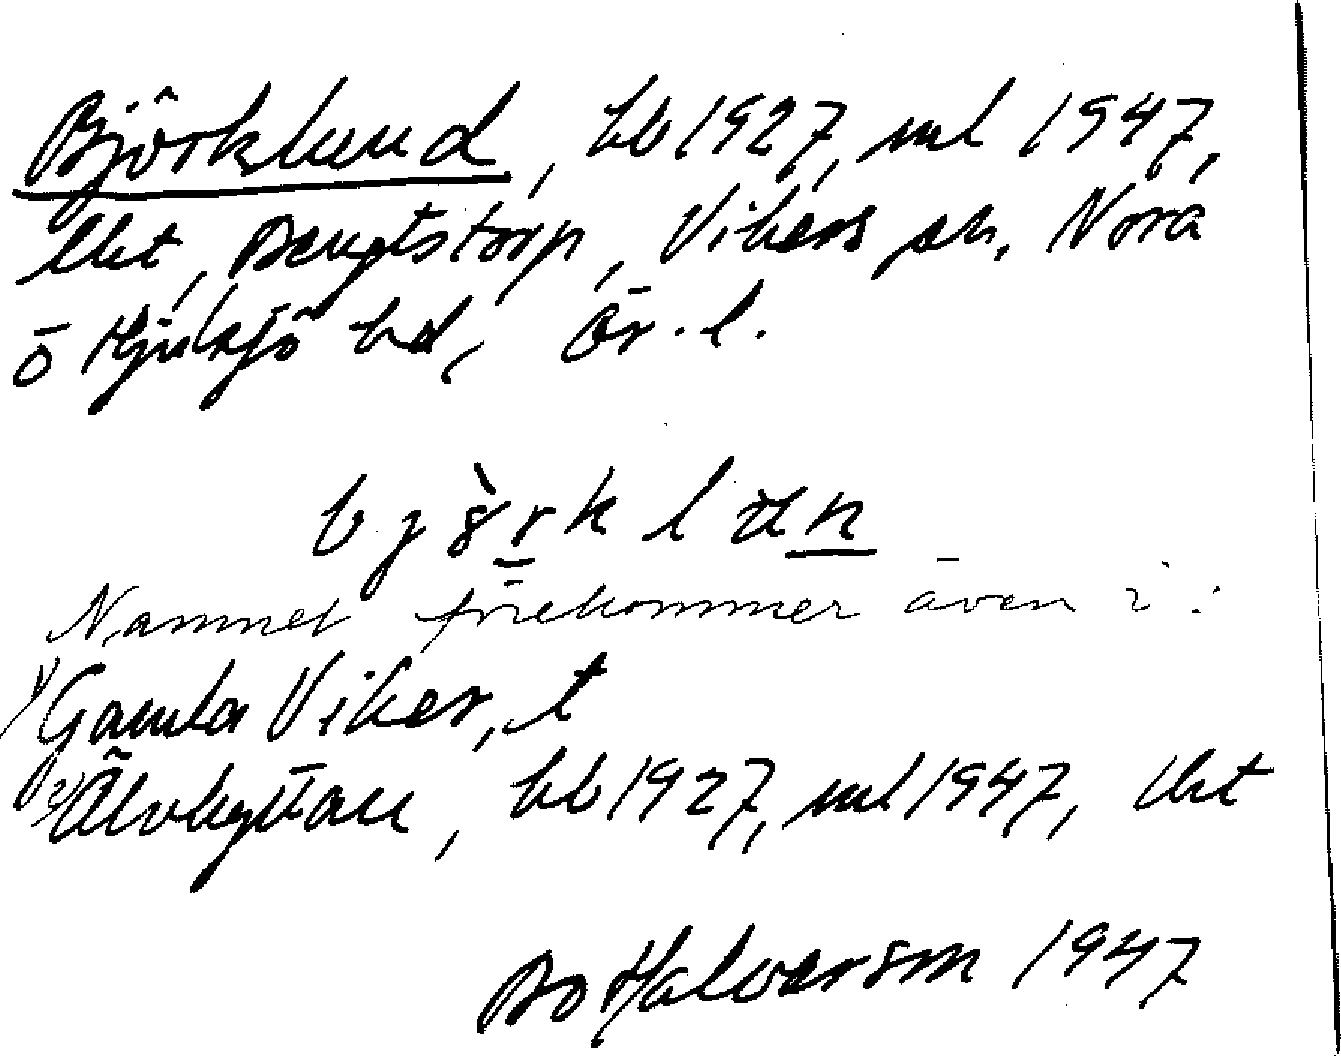 Björklund, bb 1927, ml 1947,
lht, Bengtstorp, Vikers sn, Nora
o Hjulsjö bd, Ör. l.
björklun
Namnet förekommer även i:
1) Gamla Viker, t
2) Älvhyttan, bb 1927, ml 1947, lht
Bo Halvarson 1947